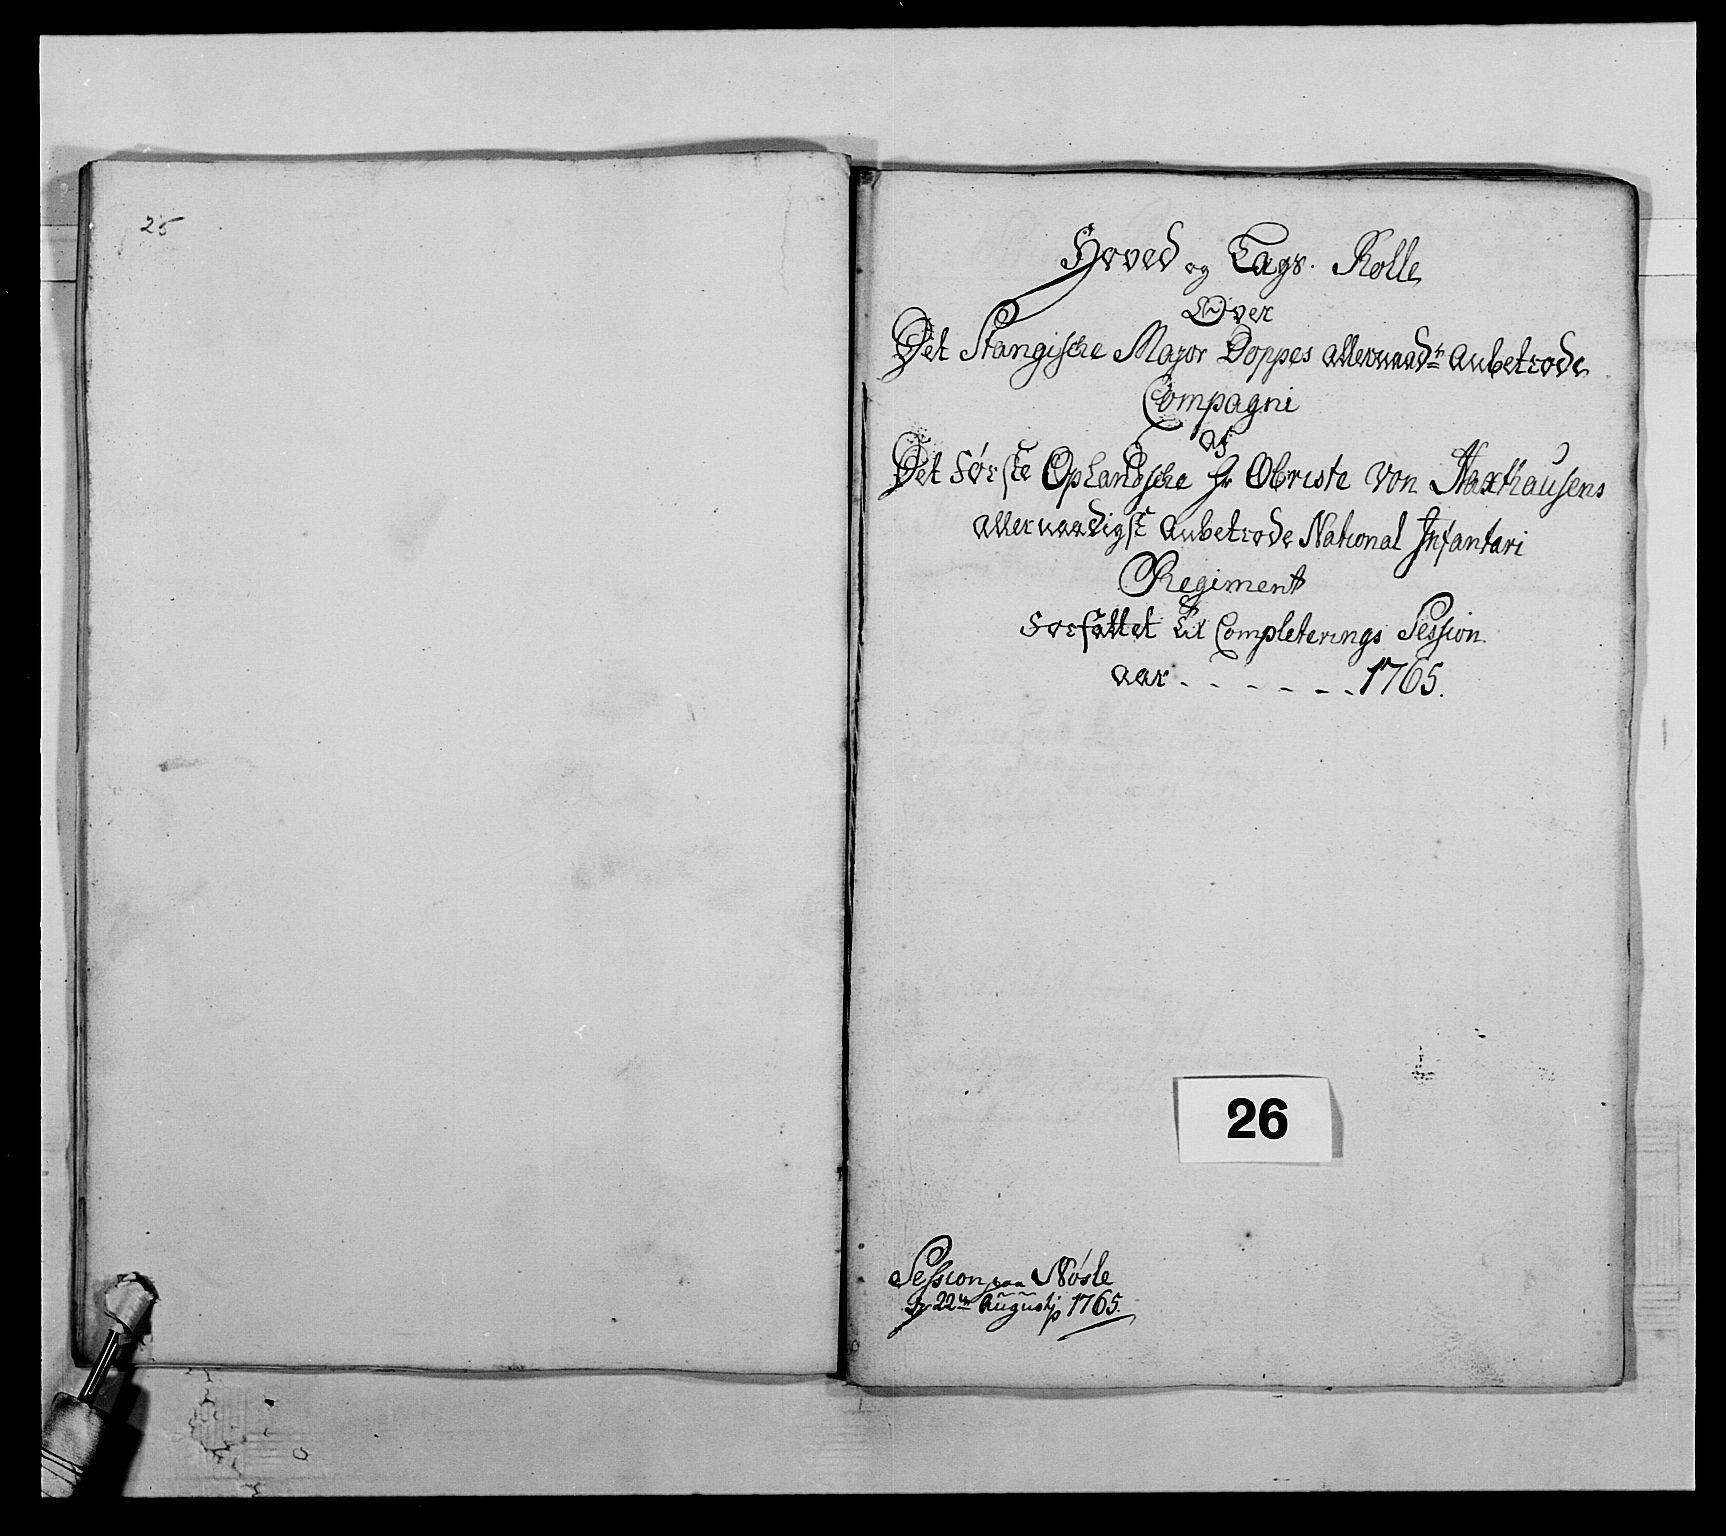 25
Hoved og Lægs. Rolle
Over
Det Stangische Major Coppes allernaadst anbetrode
Compagni
af
Det Første Oplandsche Hr Obriste von Haxthausens
allernaadigst anbetrode National Infantari
Regiment
Forfattet til Completerings Session
aar - - - - - - 1765.
26
Session paa Nøsle
22de Augustj 1765.